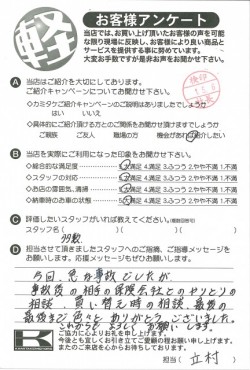 軽
お客様アンケート
当店では、お買い上げ頂いたお客様の声を可能
な限り現場に反映し、お客様により良い商品と
サービスを提供する事に努めています。
大変お手数ですが是非お声をお聞かせ下さい。
A 当店はご紹介を大切にしております。
ご紹介キャンペーンについてお聞かせ下さい。
◇カミタケご紹介キャンペーンのご説明はありましたでしょうか
はい いいえ
◇具体的にご紹介頂ける方とのご関係をお聞かせ頂けますでしょうか
ご親族 ご友人 職場の方 機会があれば紹介したい
B 当店を実際にご利用になった印象をお聞かせ下さい。
◇総合的な満足度 5.満足 4.満足 3.ふつう 2.やや不満 1.不満
◇スタッフの対応 満足 4.満足 3.ふつう 2.やや不満 1.不満
◇お店の雰囲気、清潔 満足 4.満足 3.ふつう 2.やや不満 1.不満
◇納車時のお車の状態 満足 4.満足 3.ふつう 2.やや不満 1.不満
C 評価したいスタッフがいれば教えてください。(複数回答可)
スタッフ名( )( )( )
D 担当させて頂きましたスタッフへのご指摘、ご指導メッセージを
お願いします。応援メッセージもぜひお願いします。
今回、急な事故でしたが
事故後の相手の保険会社とのやりとりの
相談、買い替え時の相談、最後の
最後まで色々とありがとうございました。
これからもよろしくお願いします。
ご協力に心よりお礼を申し上げます。
今後とも宜しくお引き立てご愛顧の程お願い申し上げます。
またのご来店を心からお待ちしております。
担当( 立村 )